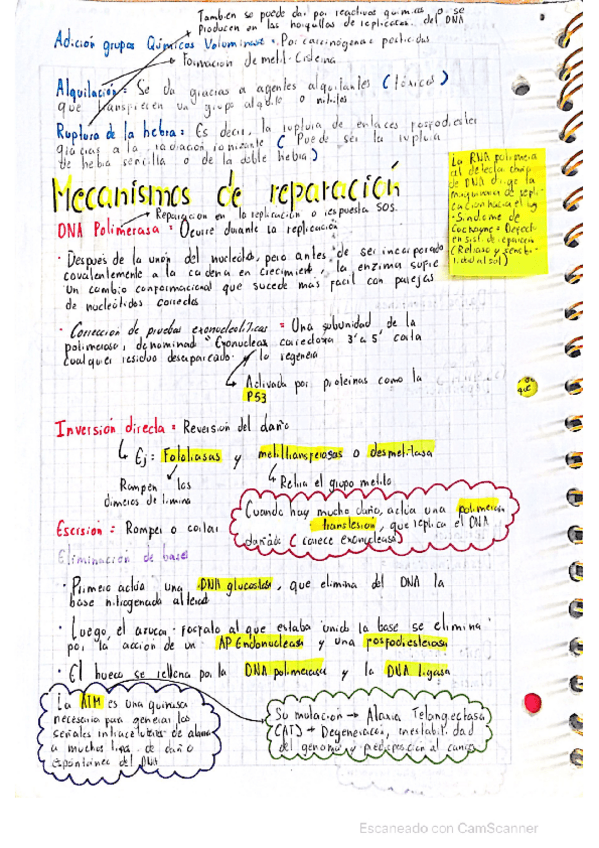 Tambien se puede dar por reactivos quimicos o se
producen en las horquillas de replicacion del DNA
Adición grupos Químicos Voluminoso = Por carcinógenos pesticidas
Formacion de metil-Citosina
Alquilación = Se da gracias a agentes alquilantes (tóxicos)
que transfieren un grupo alquilo o metilos
Ruptura de la hebra = Es decir, la ruptura de enlaces fosfodiester
gracias a la radiación ionizante (Puede ser la ruptura
de hebra sencilla o de la doble hebra)
Mecanismos de reparación
Reparacion en la replicación o respuesta SOS.
DNA Polimerasa = Ocurre durante la replicación
La RNA polimera
al detecta
de DNA dirige la
maquinaria de repli
cación hacia el
- Sindome de
Cockayne = Defecto
en sist. de reparacion
(Retraso y sensibi-
lidad al sol)
· Después de la unión del nucleotido, pero antes de ser incorporado
covalentemente a la cadena en crecimiento, la enzima sufre
un cambio conformacional que sucede mas facil con parejas
de nucleótidos correctos
· Corrección de pruebas exonucleolíticas = Una subunidad de la
polimerasa, denominada "Exonucleasa correctora 3' a 5' corta
cualquier residuo desapareado. y lo regenera
Activada por proteinas como la
P53
on
que
Inversión directa = Reversión del daño
Ej: Fotoliasas y metiltransferasas o desmetilasa
Rompen los
dimeros de timina
Retira el grupo metilo
Cuando hay mucho daño, actúa una polimerasa
translesion, que replica el DNA
dañado (carece exonucleasa)
Escisión = Romper o cortar
Eliminación de bases
· Primero actúa una DNA glucosilasa, que elimina del DNA la
base nitrogenada alterada
· Luego, el azucar-fosfato al que estaba unido la base se elimina
por la acción de un AP Endonucleasa y una fosfodiesterasa
· El hueco se rellena por la DNA polimerasa y la DNA ligasa
La ATM es una quinasa
necesaria para generar las
señales intracelulares de alarma
a muchos tipos de daño
espontáneo del DNA
Su mutación → Ataxia Telangiectasa
(AT) → Degeneración, inestabilidad
del genoma y predisposición al cancer
Escaneado con CamScanner